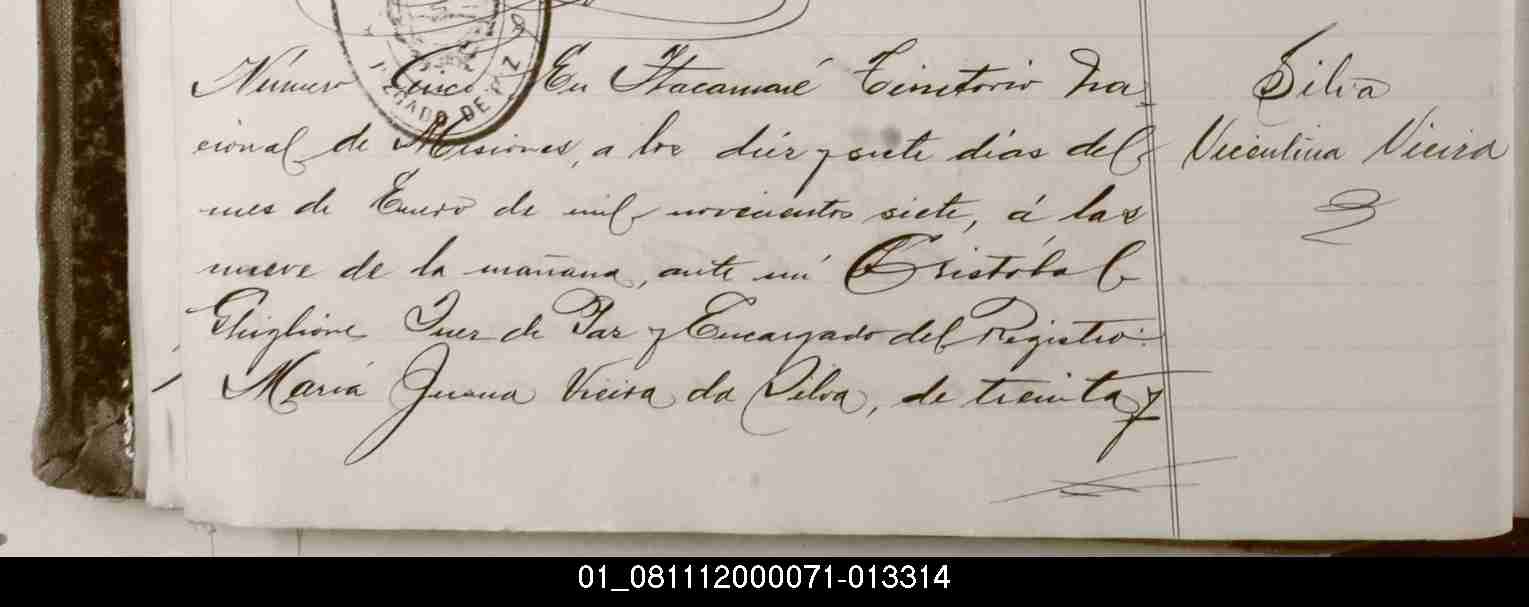 JUZGADO DE PAZ
Número Cinco En Itacaruaré Territorio Na
cional de Misiones, a los diez y siete dias del
mes de Enero de mil novecientos siete, á las
nueve de la mañana, ante mi Cristóbal
Ghiglione Juez de Paz y Encargado del Registro:
Maria Juana Vieira da Silva, de treinta y
Silva
Vicentina Vieira
01_081112000071-013314